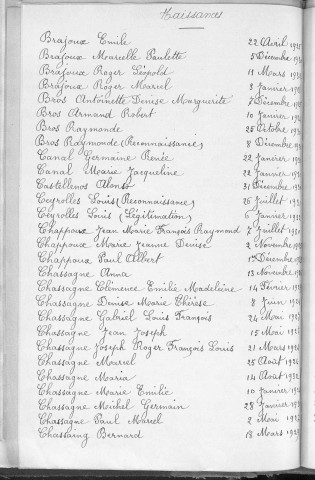 Naissances
Brajoux Emile 22 Avril
Brajoux Marcelle Paulette 5 Décembre
Brajoux Roger Léopold 11 Mars
Brajoux Roger Marcel Janvier
Bros Antoinette Denise Marguerite 7 Décembre
Bros Armand Robert 10 Janvier
Bros Raymonde 25 Octobre
Bros Raymonde (Reconnaissance) 8 Décembre
Canal Germaine Renée 22 Janvier
Canal Marie Jacqueline 22 Janvier
Castellenos Alonso 31 Décembre
Ceyrolles Louis (Reconnaissance) 26 Juillet
Ceyrolles Louis (Légitimation) 6 Janvier
Chappoux Jean Marie François Raymond 7 Juillet
Chappoux Marie Jeanne Denise 2 Novembre
Chappoux Paul Albert Décembre
Chassagne Anna 13 Novembre
Chassagne Clémence Emilie Madeleine 14 Février
Chassagne Denise Marie Thérèse 8
Chassagne Gabriel Louis François 24 Mai
Chassagne Jean Joseph 15 Mai
Chassagne Joseph Roger François Louis 21 Mars
Chassagne Marcel 25 Août
Chassagne Maria 14 Août
Chassagne Marie Emilie 10 Janvier
Chassagne Michel Germain 28 Janvier
Chassagne Paul Marcel 2 Mai
Chassaing Bernard 18 Mars